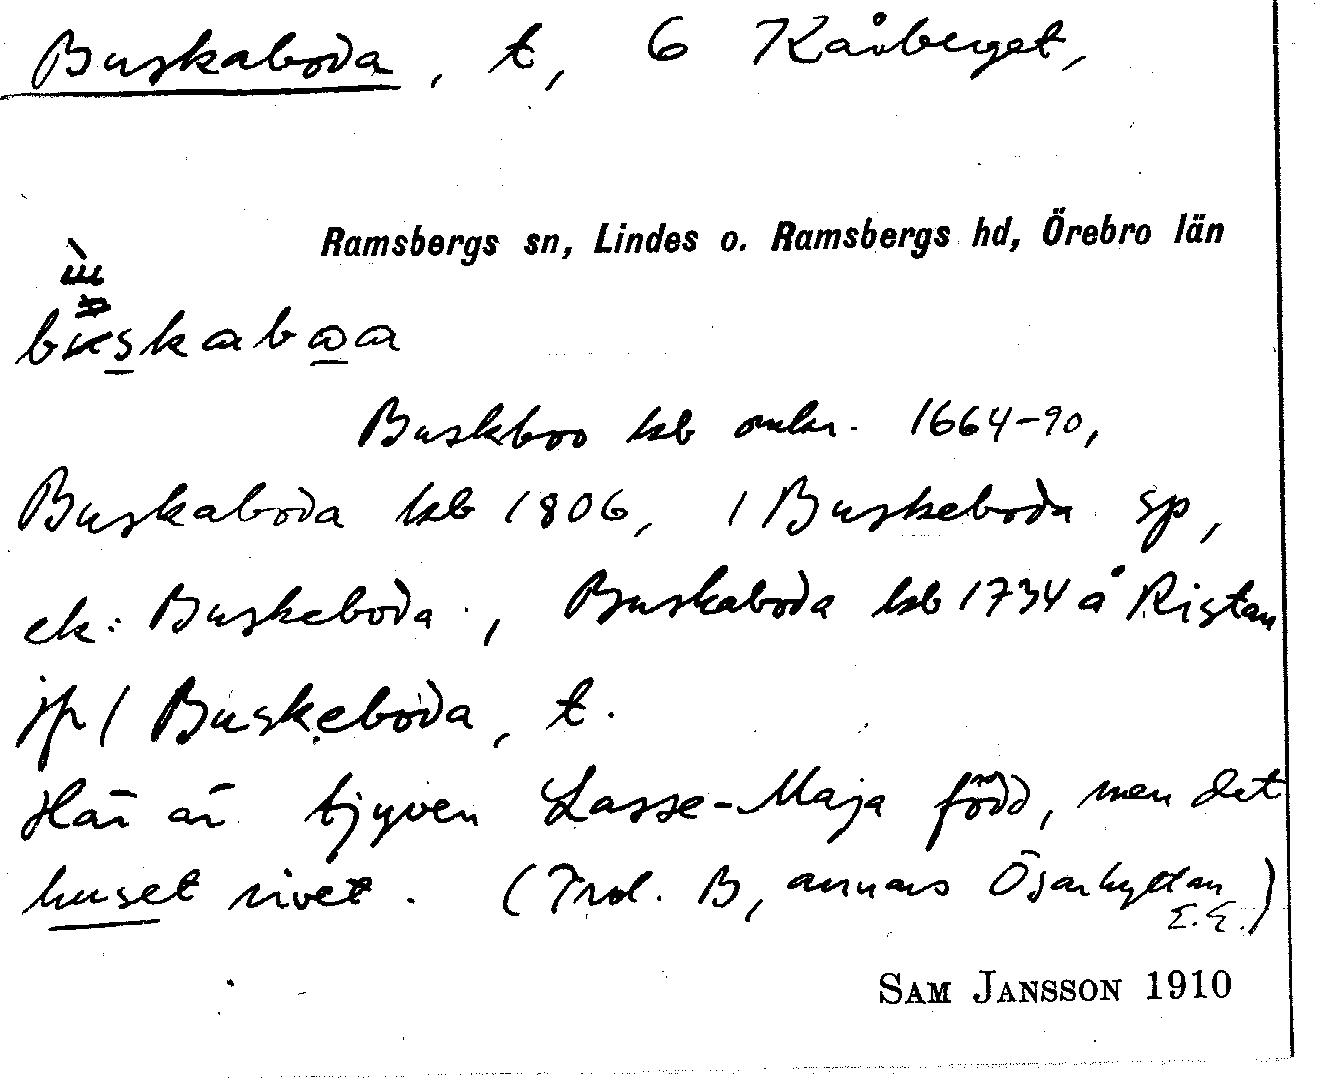 Buskaboda, t, 6 Kåvberget,
Ramsbergs sn, Lindes o. Ramsbergs hd, Örebro län
Buskboo kb omkr. 1664-90,
Buskaboda kb 1806, / Buskeboda sp,
ek: Buskeboda, Buskaboda kb 1734 å Ristan
jfr / Buskeboda, t.
Här är tjyven Lasse-Maja född, men det
huset rivet. (Trol. B, annars Ösarhyttan
E.E.)
SAM JANSSON 1910